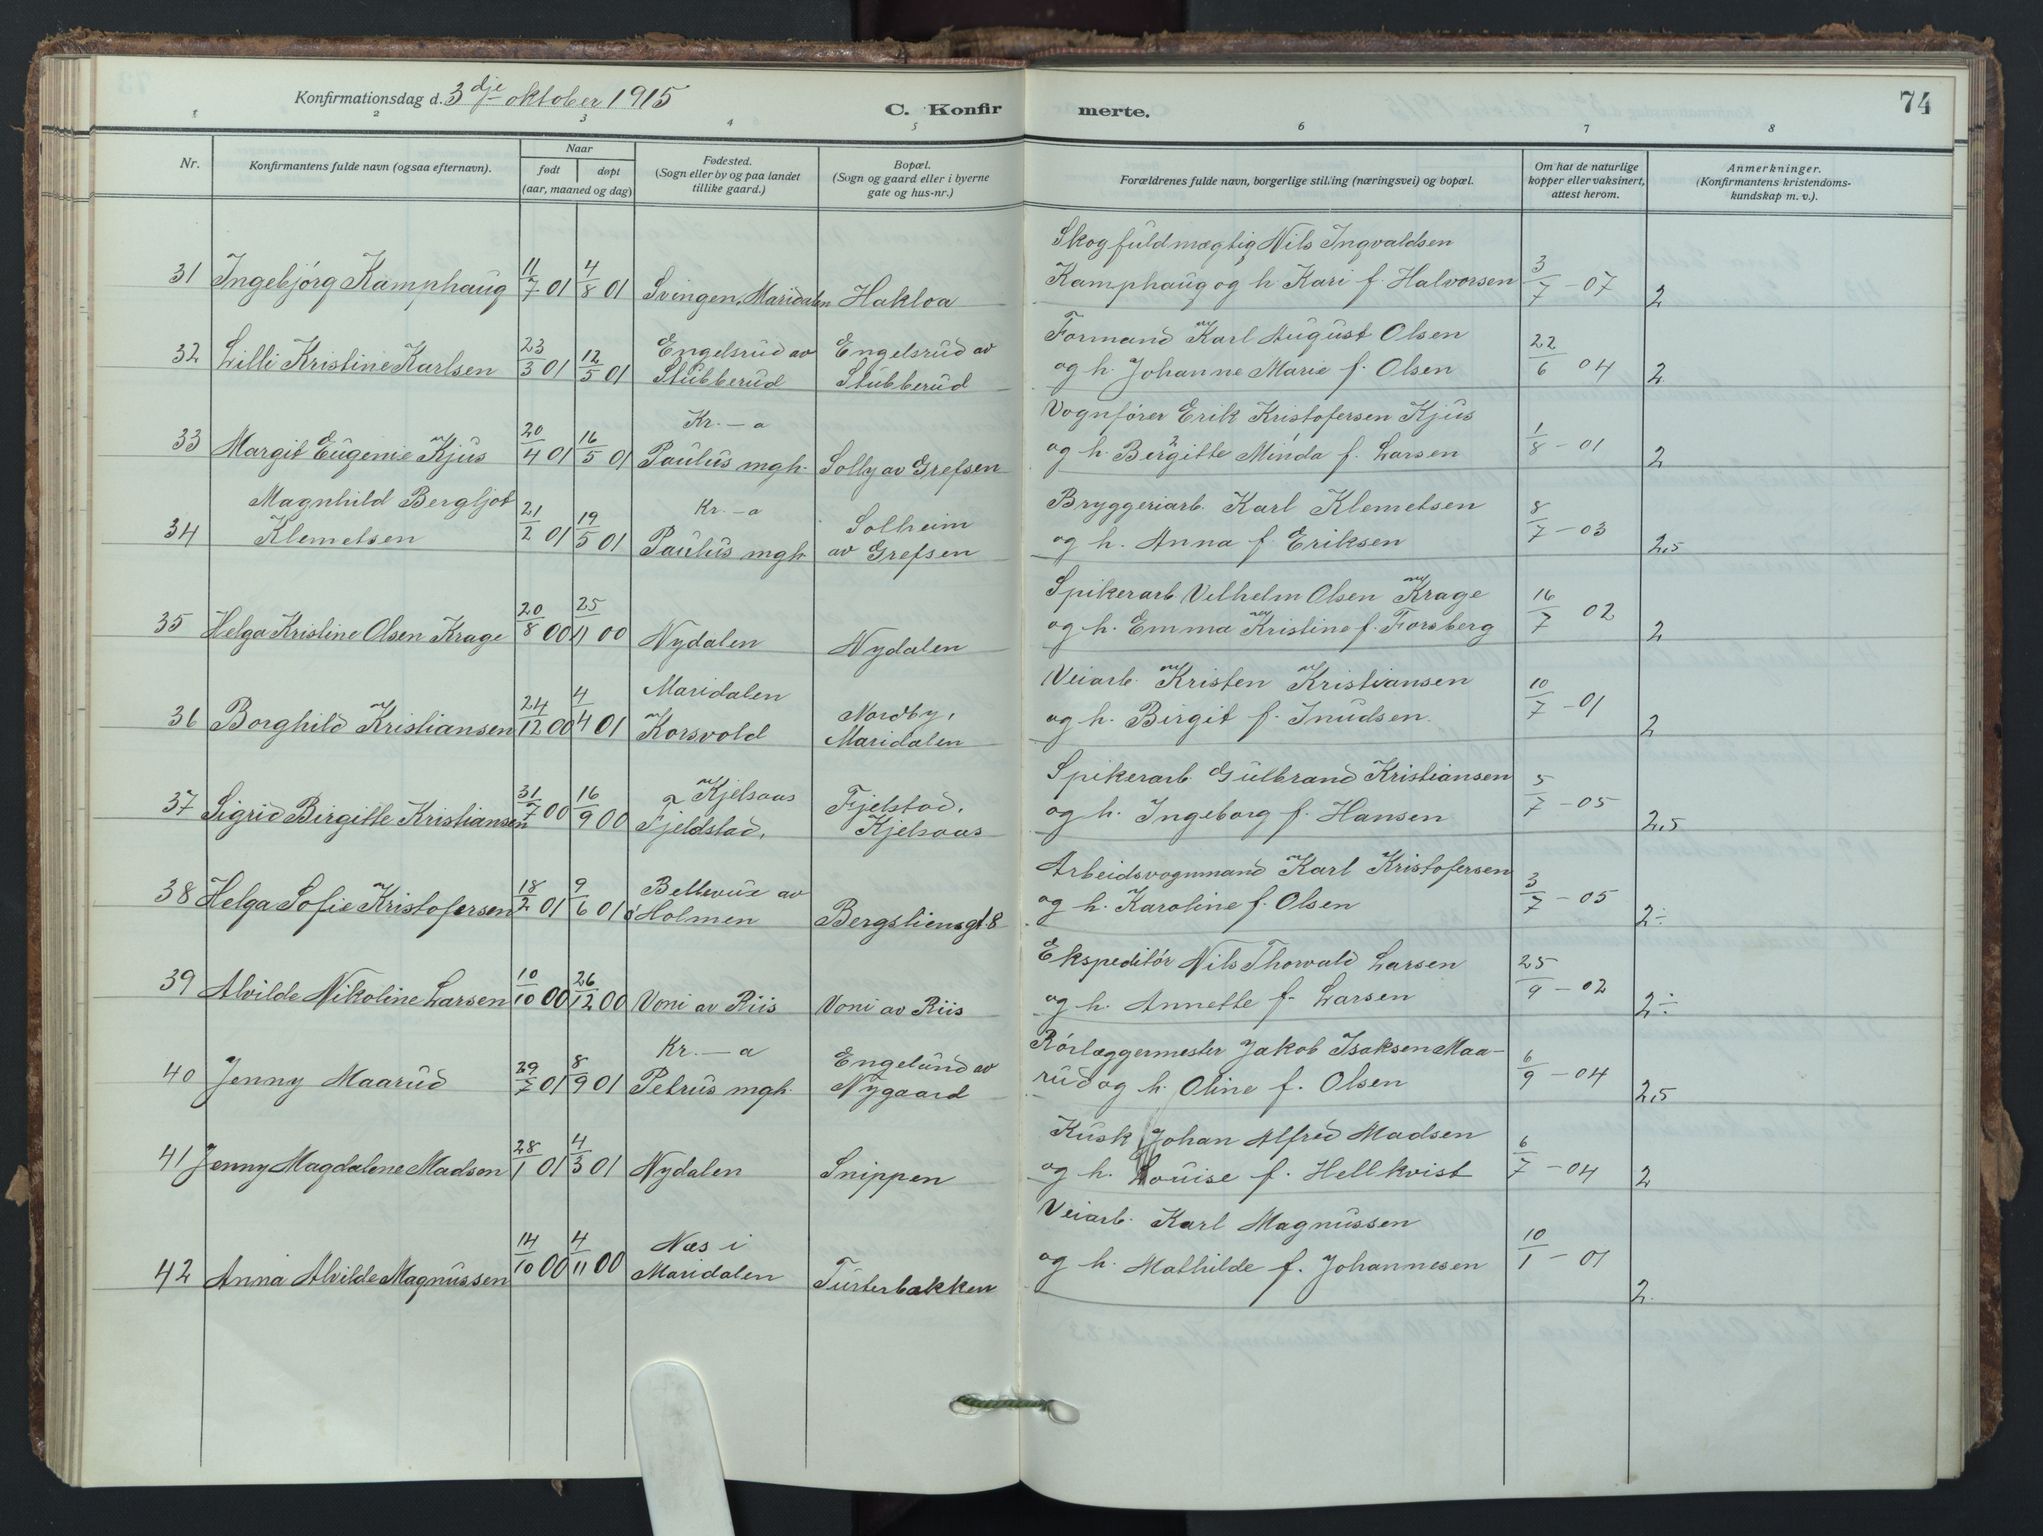 74
Konfirmationsdag d. 3dje oktober 1915
C. Konfir merte.
1 2 3 4 5 6 7 8
Nr.
Konfirmantens fulde navn (ogsaa efternavn).
Naar
født døpt
(aar, maaned og dag)
Fødested.
(Sogn eller by og paa landet
tillike gaard.)
Bopæl.
(Sogn og gaard eller i byerne
gate og hus-nr.)
Forældrenes fulde navn, borgerlige stilling (næringsvei) og bopæl.
Om hat de naturlige
kopper eller vaksinert,
attest herom.
Anmerkninger.
(Konfirmantens kristendoms-
kundskap m. v.).
Skogfuldmægtig Nils Ingvaldsen
31 Ingebjörg Kamphaug 11/7 01 4/8 01 Svingen, Maridalen Hakloa Kamphaug og h. Kari f. Halvorsen 3/7 - 07 2
Engelsrud av Engelsrud av Formand Karl August Olsen
32 Lilli Kristine Karlsen 23/3 01 12/5 01 Stubberud Stubberud og h. Johanne Marie f. Olsen 22/6 04 2
Kr. - a Vognförer Erik Kristofersen Kjus
33 Margit Eugenie Kjus 20/4 01 16/5 01 Paulus mgh. Solly av Grefsen og h. Bergitte Minda f. Larsen 1/8 - 01 2
Magnhild Bergljot Kr. - a Solheim Bryggeriarb. Karl Klemetsen
34 Klemetsen 21/2 01 19/5 01 Paulus mgh. av Grefsen og h. Anna f. Eriksen 8/7 - 03 2,5
Spikerarb. Vilhelm Olsen Krage
35 Helga Kristine Olsen Krage 20/8 00 25/11 00 Nydalen Nydalen og h. Emma Kristine f. Forsberg 16/7 02 2
Maridalen Nordby, Veiarb. Kristen Kristiansen
36 Borghild Kristiansen 24/12 00 4/4 01 Korsvold Maridalen og h. Birgit f. Knudsen 10/7 - 01 2
Kjelsaas Fjelstad, Spikerarb. Gulbrand Kristiansen
37 Sigrid Birgitte Kristiansen 31/7 00 16/9 00 Fjeldstad, Kjelsaas og h. Ingeborg f. Hansen 5/7 - 05 2,5
Bellevue av Arbeidsvognmand Karl Kristofersen
38 Helga Sofie Kristofersen 18/2 01 9/6 01 Holmen Bergsliensgt. 8 og h. Karoline f. Olsen 3/7 - 05 2÷
Ekspeditör Nils Thorvald Larsen
39 Alvilde Nikoline Larsen 10/10 00 26/12 00 Voni av Riis Voni av Riis og h. Annette f. Larsen 25/9 - 02 2÷
Kr. - a Engelund av Rörlæggermester Jakob Isaksen Maa-
40 Jenny Maarud 29/7 01 8/9 01 Petrus mgh. Nygaard rud og h. Oline f. Olsen 6/9 - 04 2,5
Kusk Johan Alfred Madsen
41 Jenny Magdalene Madsen 28/1 01 4/3 01 Nydalen Snippen og h. Louise f. Hellkvist 6/7 - 04 2
Næs i Veiarb. Karl Magnussen
42 Anna Alvilde Magnussen 14/10 00 4/11 00 Maridalen Turterbakken og h. Mathilde f. Johannesen 10/1 - 01 2.